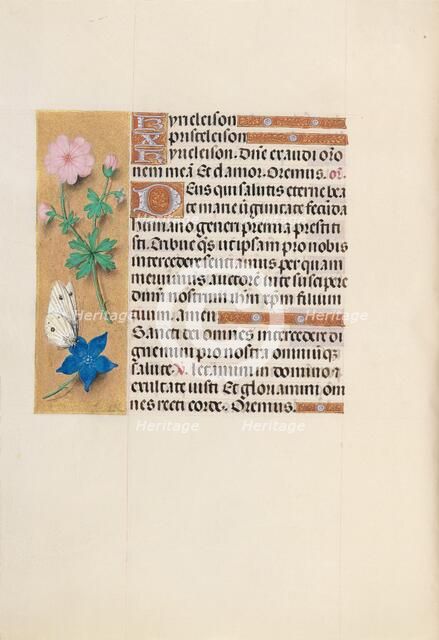 Kyrieleison
Xpristeleison
Kyrieleison. Dñe exaudi oro
nem meã Et clamor. Oremus. or̃.
Deus qui salutis eterne bea
te marie ũginitate fecũda
humano generi premia prestiti
sti. Tribue q̃s ut ipsam pro nobis
intercedere sentiamus per quam
meruimus auctorẽ vite suscipere
dñm nostrum ihm xpm filium
tuum. amen
Sancti dei omnes intercedere di
gnemini pro nostra omniũq̃
salute v̄. Letamini in domino et
exultate iusti Et gloriamini om
nes recti corde. Oremus.
Heritage
Heritage
Heritage
Heritage
Heritage
Heritage
Heritage
Heritage